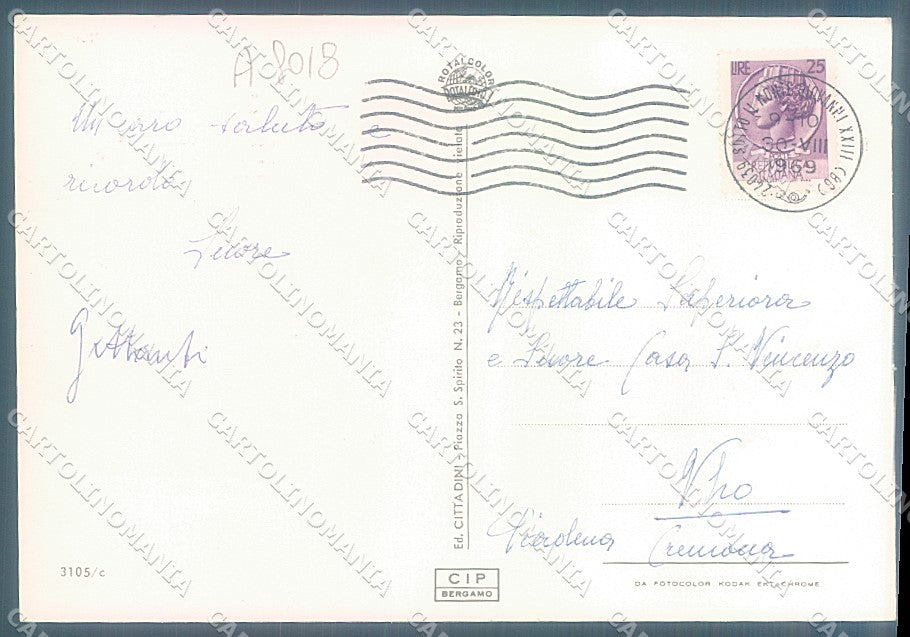 A 8018
Un caro saluto e
ricordo
Suore
ROTALCOLOR
ROTALFOTO
MILANO
LIRE 25
REPUBBLICA
ITALIANA
SOTTO IL MONTE GIOVANNI XXIII (BG)
9-10
30-VIII
1969
24039
Rispettabile Superiora
e Suore Casa S. Vincenzo
Vho
Piadena Cremona
Ed. CITTADINI - Piazza S. Spirito N. 23 - Bergamo - Riproduzione vietata
3105/c
CIP
BERGAMO
DA FOTOCOLOR KODAK EKTACHROME
CARTOLINOMANIA